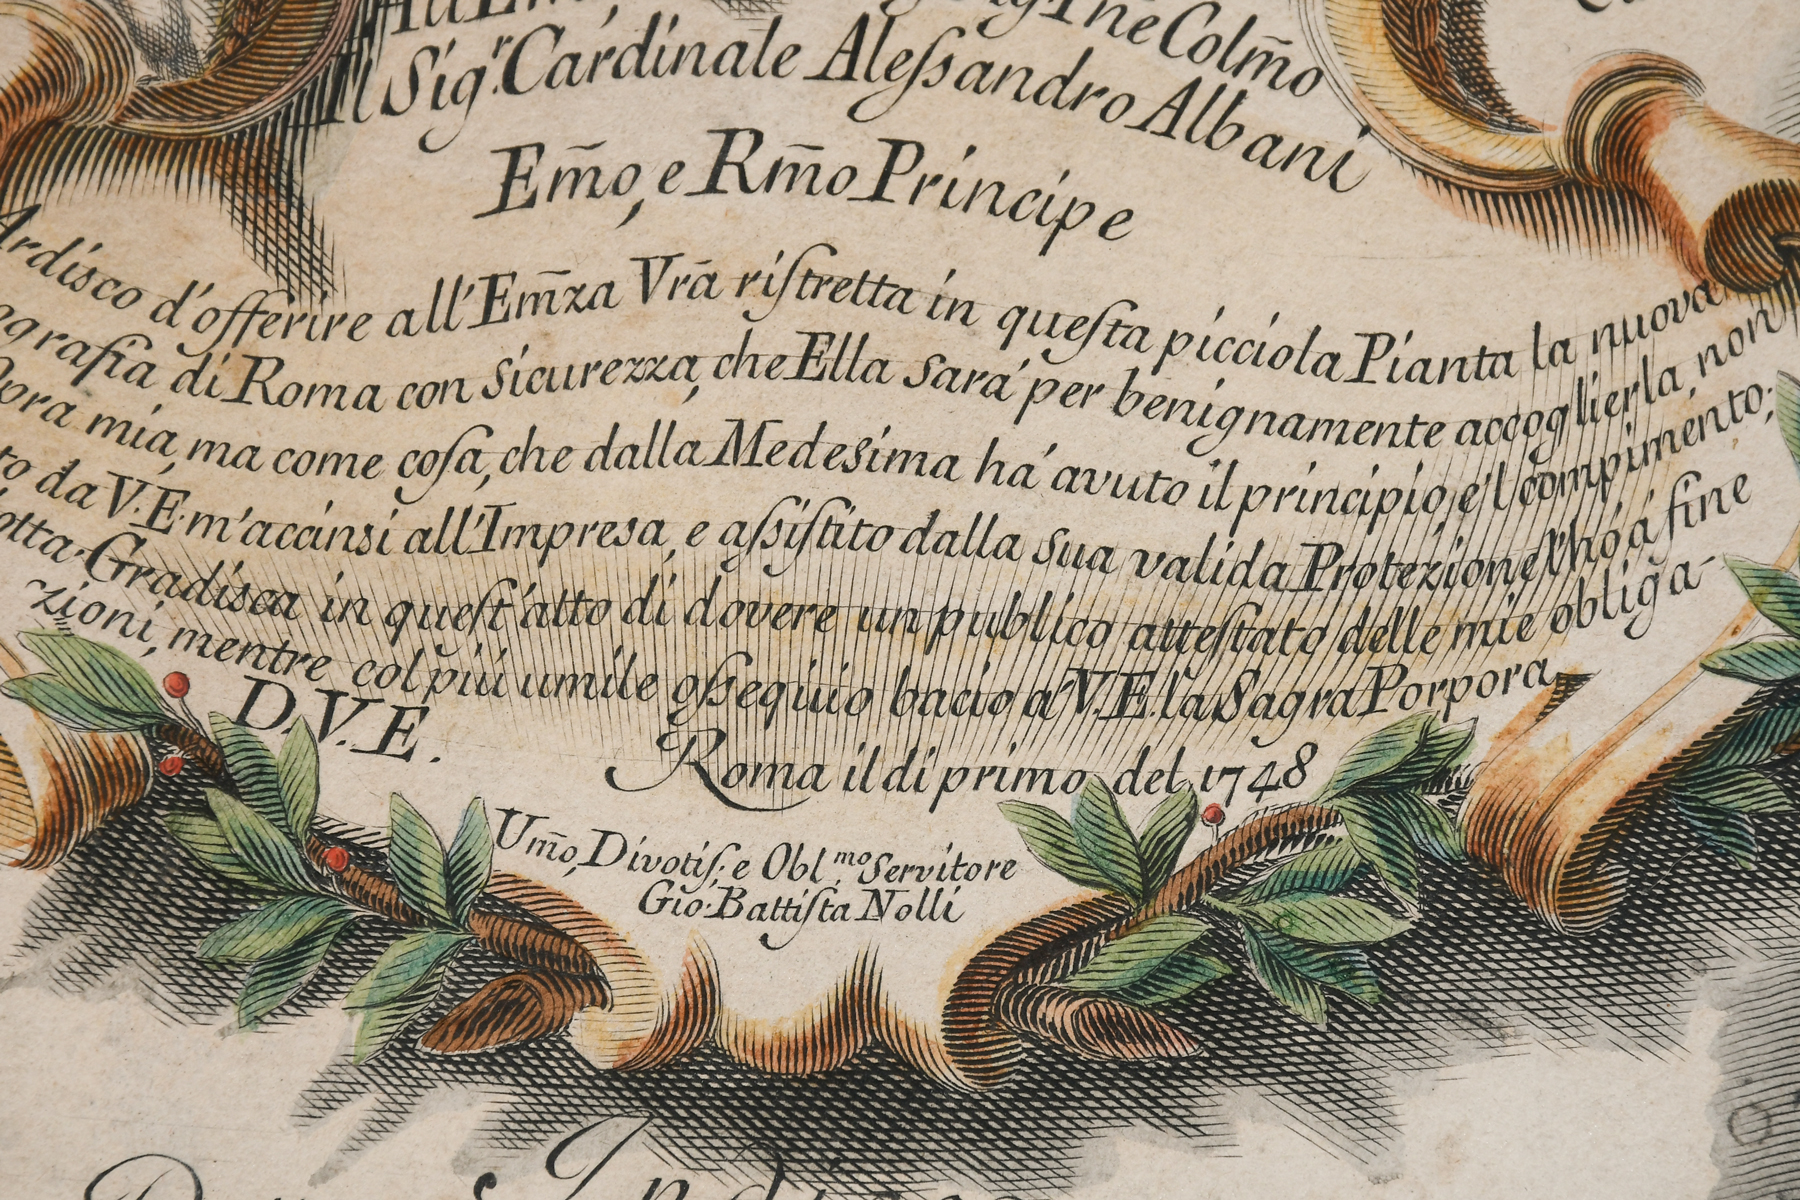 All'Em
Sig.r Pne Colm̃o
Il Sig.r Cardinale Aleſsandro Albani
Em̃o, e Rm̃o Principe
Ardisco d'offerire all'Em̃za Vrã riſtretta in queſta picciola Pianta la nuova
egrafia di Roma con sicurezza, che Ella sarà per benignamente accoglierla, non
pora mia, ma come coſa, che dalla Medesima hà avuto il principio, e'l compimento;
to da V.E. m'accinsi all'Impresa, e aſsiſtito dalla sua valida Protezione l'hò à fine
otta. Gradisca in queſt'atto di dovere un publico atteſtato delle mie obliga-
-zioni, mentre col più umile oſsequio bacio à V.E. la Sagra Porpora.
D.V.E.
Roma il di primo del 1748
Um̃o, Divotiſ. e Obl.mo Servitore
Gio. Battiſta Nolli